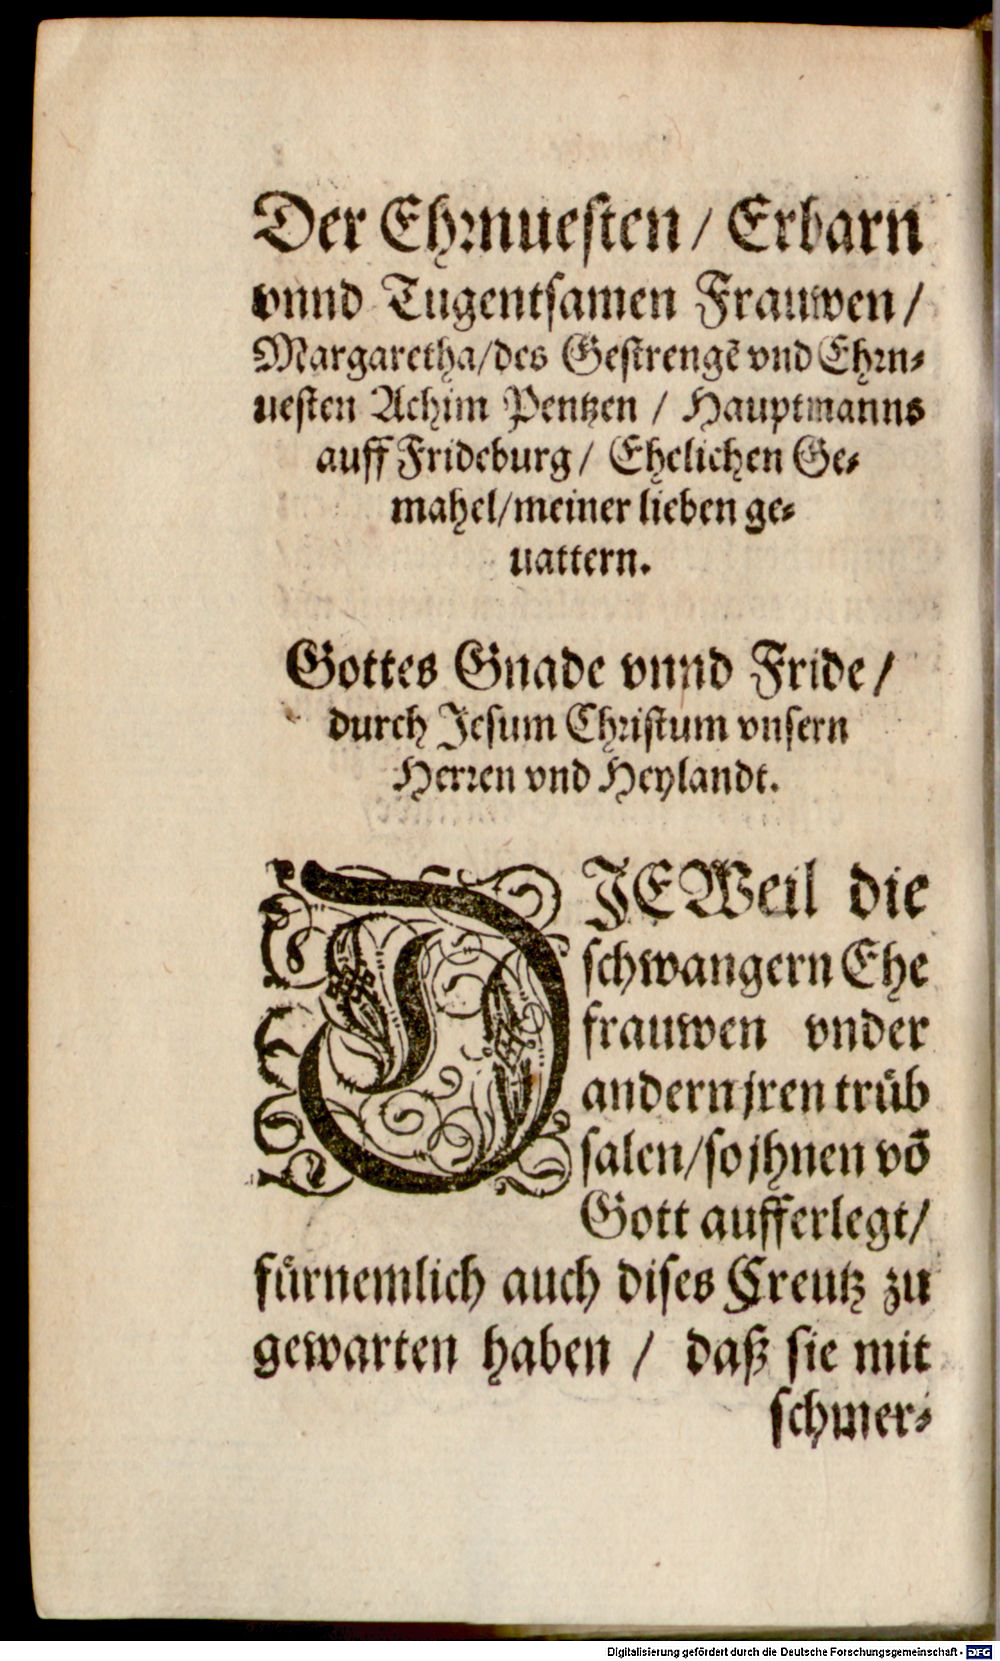 Der Ehrnuesten / Erbarn
vnnd Tugentsamen Frauwen /
Margaretha / des Gestrengē vnd Ehrn⸗
uesten Achim Pentzen / Hauptmanns
auff Frideburg / Ehelichen Ge⸗
mahel / meiner lieben ge⸗
uattern.
Gottes Gnade vnnd Fride /
durch Jesum Christum vnsern
Herren vnd Heylandt.
DJEWeil die
schwangern Ehe
frauwen vnder
andern jren trůb
salen / so jhnen vō
Gott aufferlegt /
fůrnemlich auch dises Creutz zu
gewarten haben / daß sie mit
schmer⸗
Digitalisierung gefördert durch die Deutsche Forschungsgemeinschaft - DFG